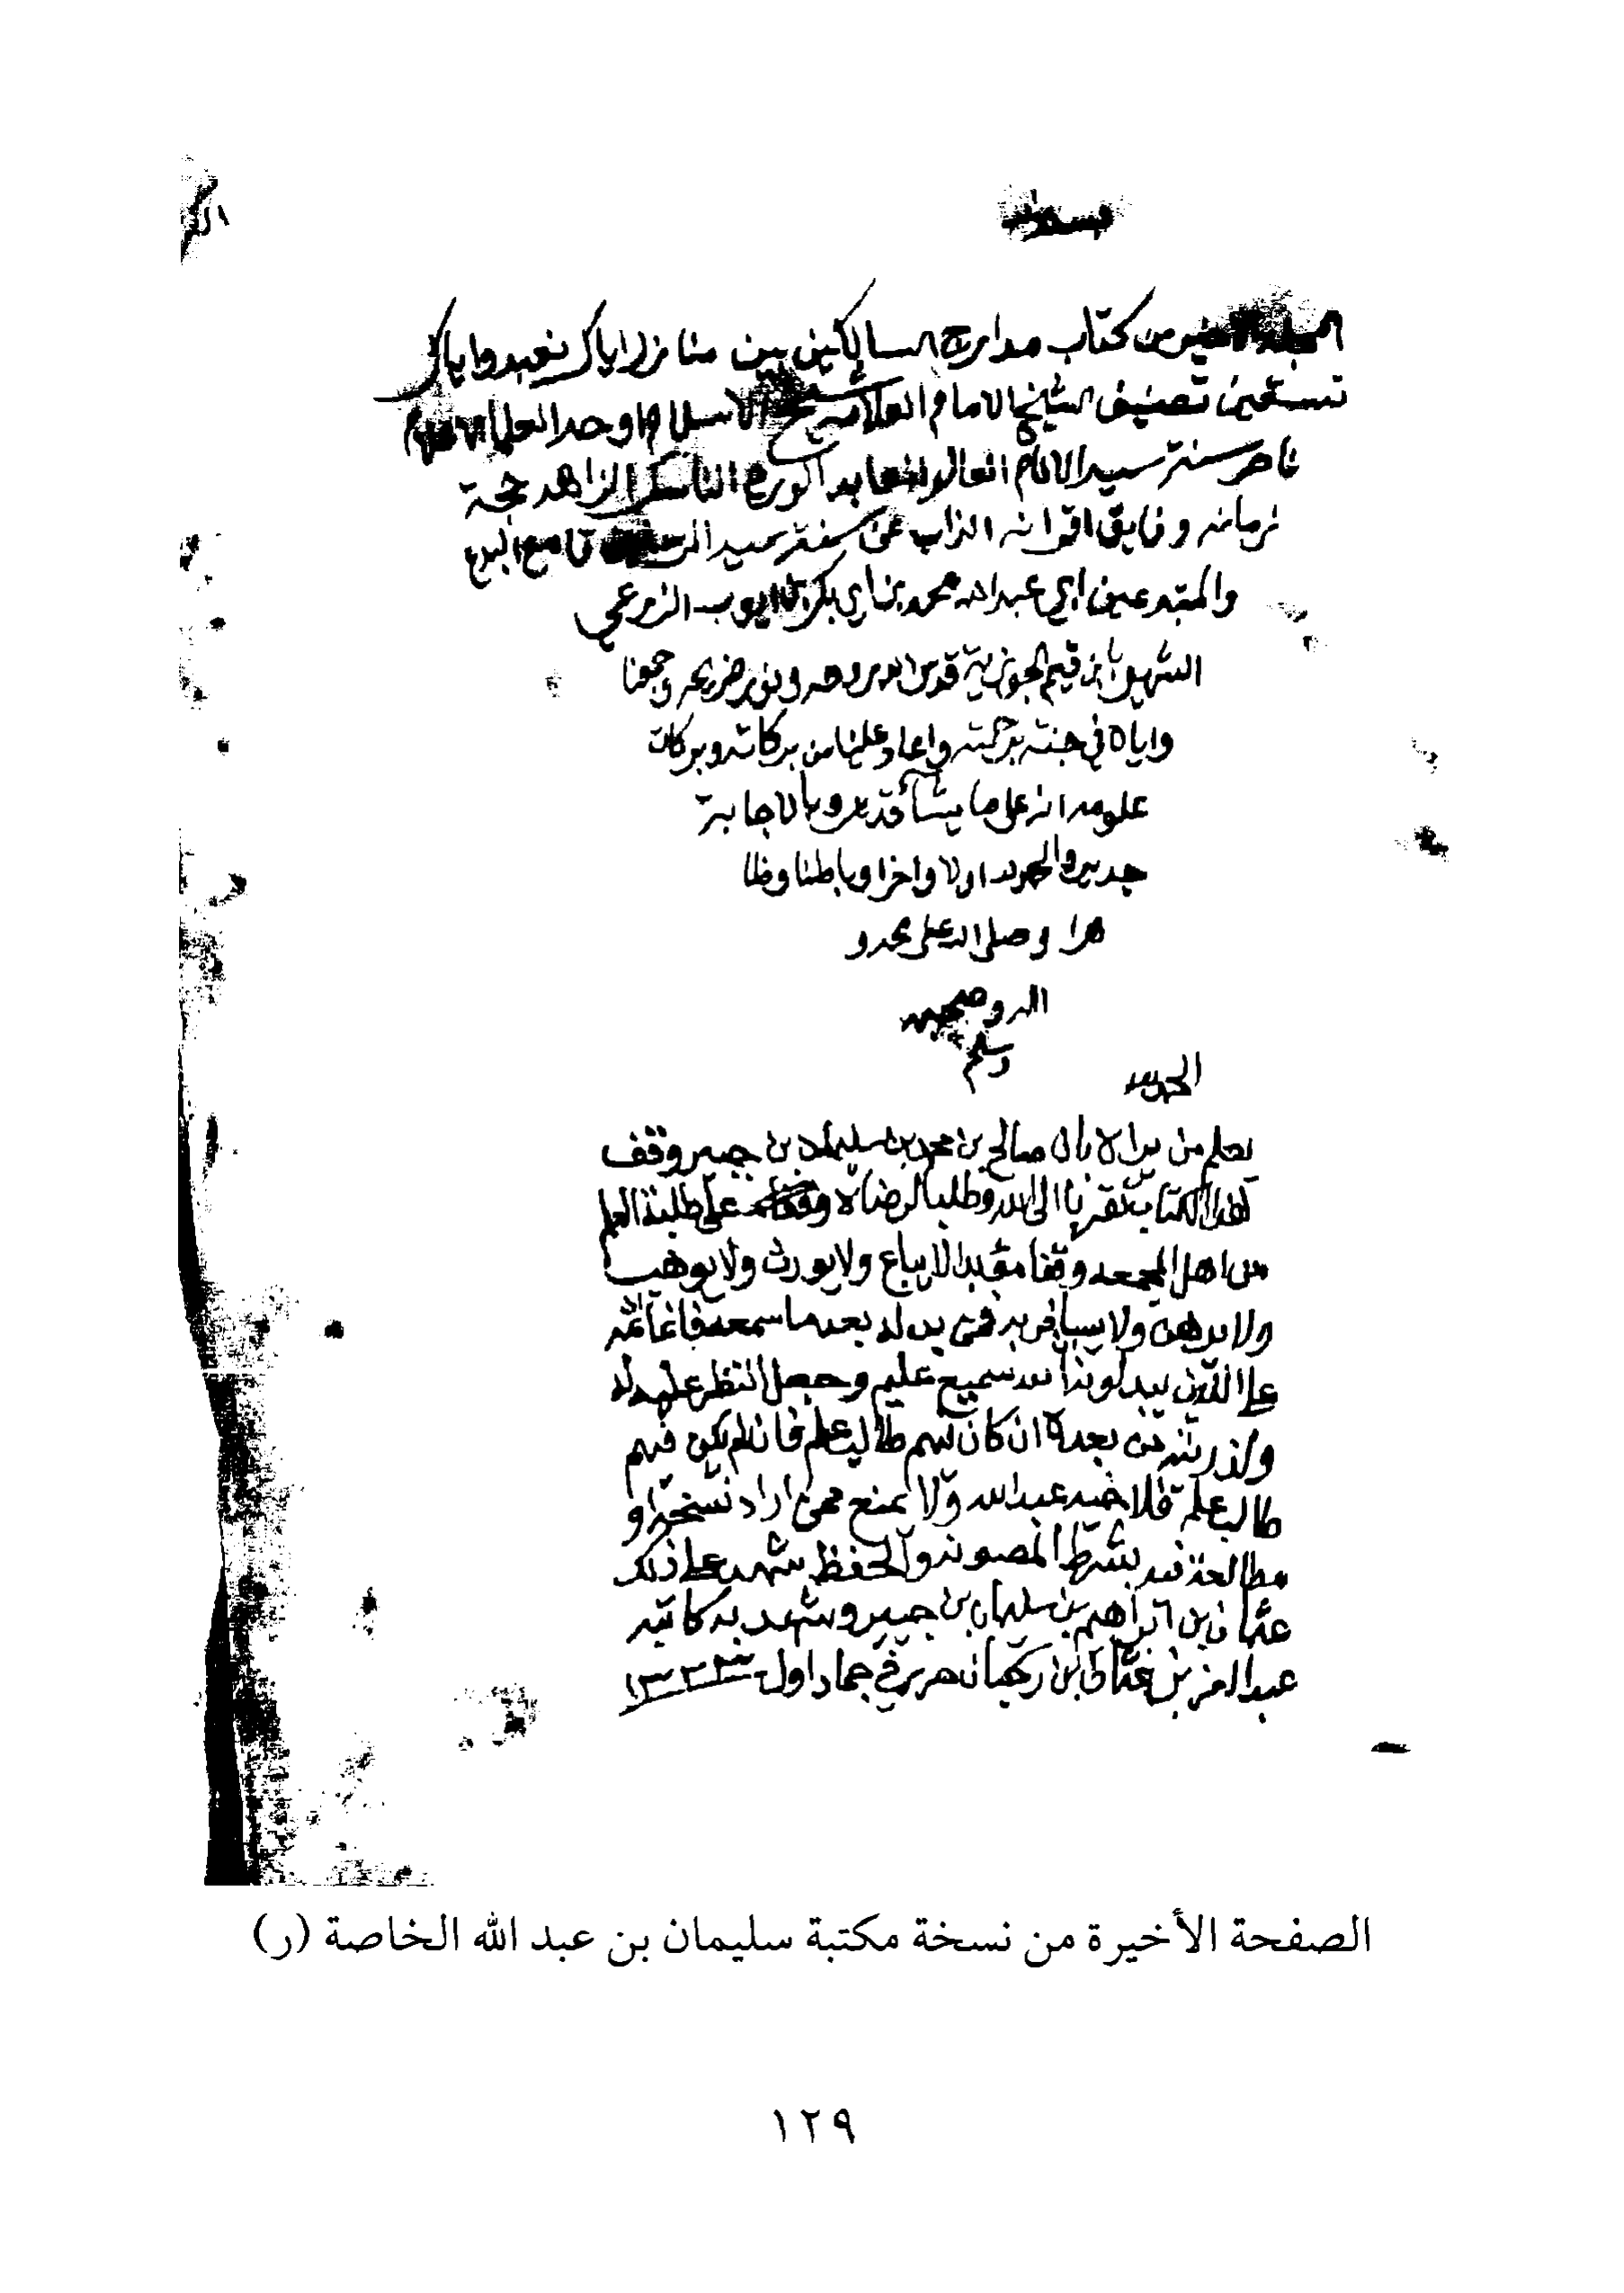 المجلد الاخير من كتاب مدارج السالكين بين منازل اياك نعبد واياك
نستعين تصنيف الشيخ الامام العلامة شيخ الاسلام اوحد العلماء
ناصر سنة سيد الانام العالم العابد الورع الناسك الزاهد حجة
زمانه وفايق اقرانه الذاب عن سنة سيد قامع البدع
والمبتدعين ابي عبد الله محمد بن ابي بكر بن ايوب الزرعي
الشهير بابن قيم الجوزية قدس الله روحه ونور ضريحه وجمعنا
واياه في جنته برحمته واعاد علينا من بركاته وبركات
علومه انه على ما يشاء قدير وبالاجابة
جدير والحمد لله اولا واخرا وباطنا وظا
هرا وصلى الله على محمد و
اله وصحبه
وسلم
الحمد لله
يعلم من يراه بان صالح بن محمد بن سليمان بن جبير وقف
هذا الكتاب تقربا الى الله وطلبا لرضاه على طلبة العلم
من اهل المجمعه وقفا مؤبدا لا يباع ولا يورث ولا يوهب
ولا يرهن ولا يسافر به فمن بدله بعد ما سمعه فانما اثمه
على الذين يبدلونه ان الله سميع عليم وجعل النظر عليه له
ولذريته من بعده ان كان فيهم طالب علم فان لم يكن فيهم
طالب علم فلاخيه عبد الله ولا يمنع ممن اراد نسخه او
مطالعة فيه بشرط الصون والحفظ شهد على ذلك
عثمان بن ابراهيم بن سليمان بن جبير وشهد به كاتبه
عبد العزيز بن عثمان بن ركبان حرر في جماد اول
الصفحة الأخيرة من نسخة مكتبة سليمان بن عبد الله الخاصة (ر)
١٢٩